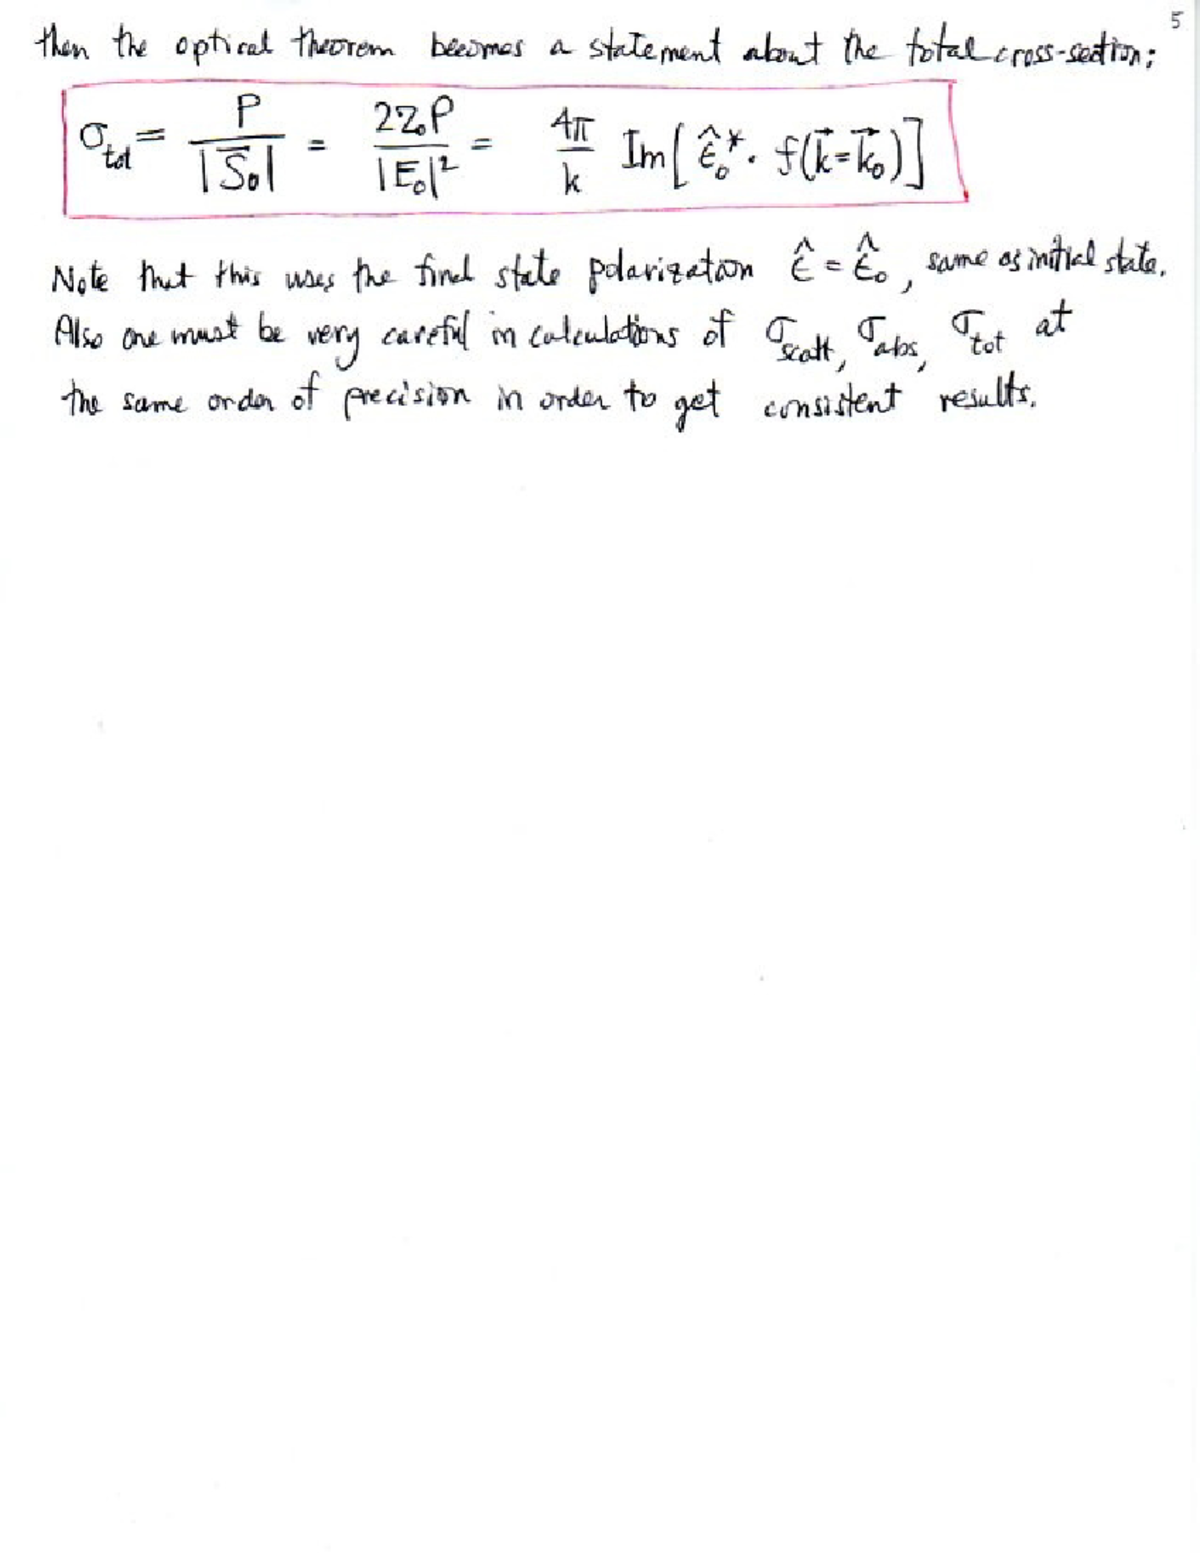 5
then the optical theorem becomes a statement about the total cross-section:
σ_tot = P / |S̄₀| = 2Z₀P / |E₀|² = 4π / k Im[ ε̂₀* · f(k⃗=k⃗₀)]
Note that this uses the final state polarization ε̂ = ε̂₀, same as initial state.
Also one must be very careful in calculations of σ_scatt, σ_abs, σ_tot at
the same order of precision in order to get consistent results.